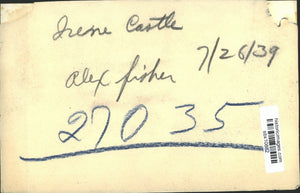 Irene Castle
7/26/39
Alex Fisher
27035